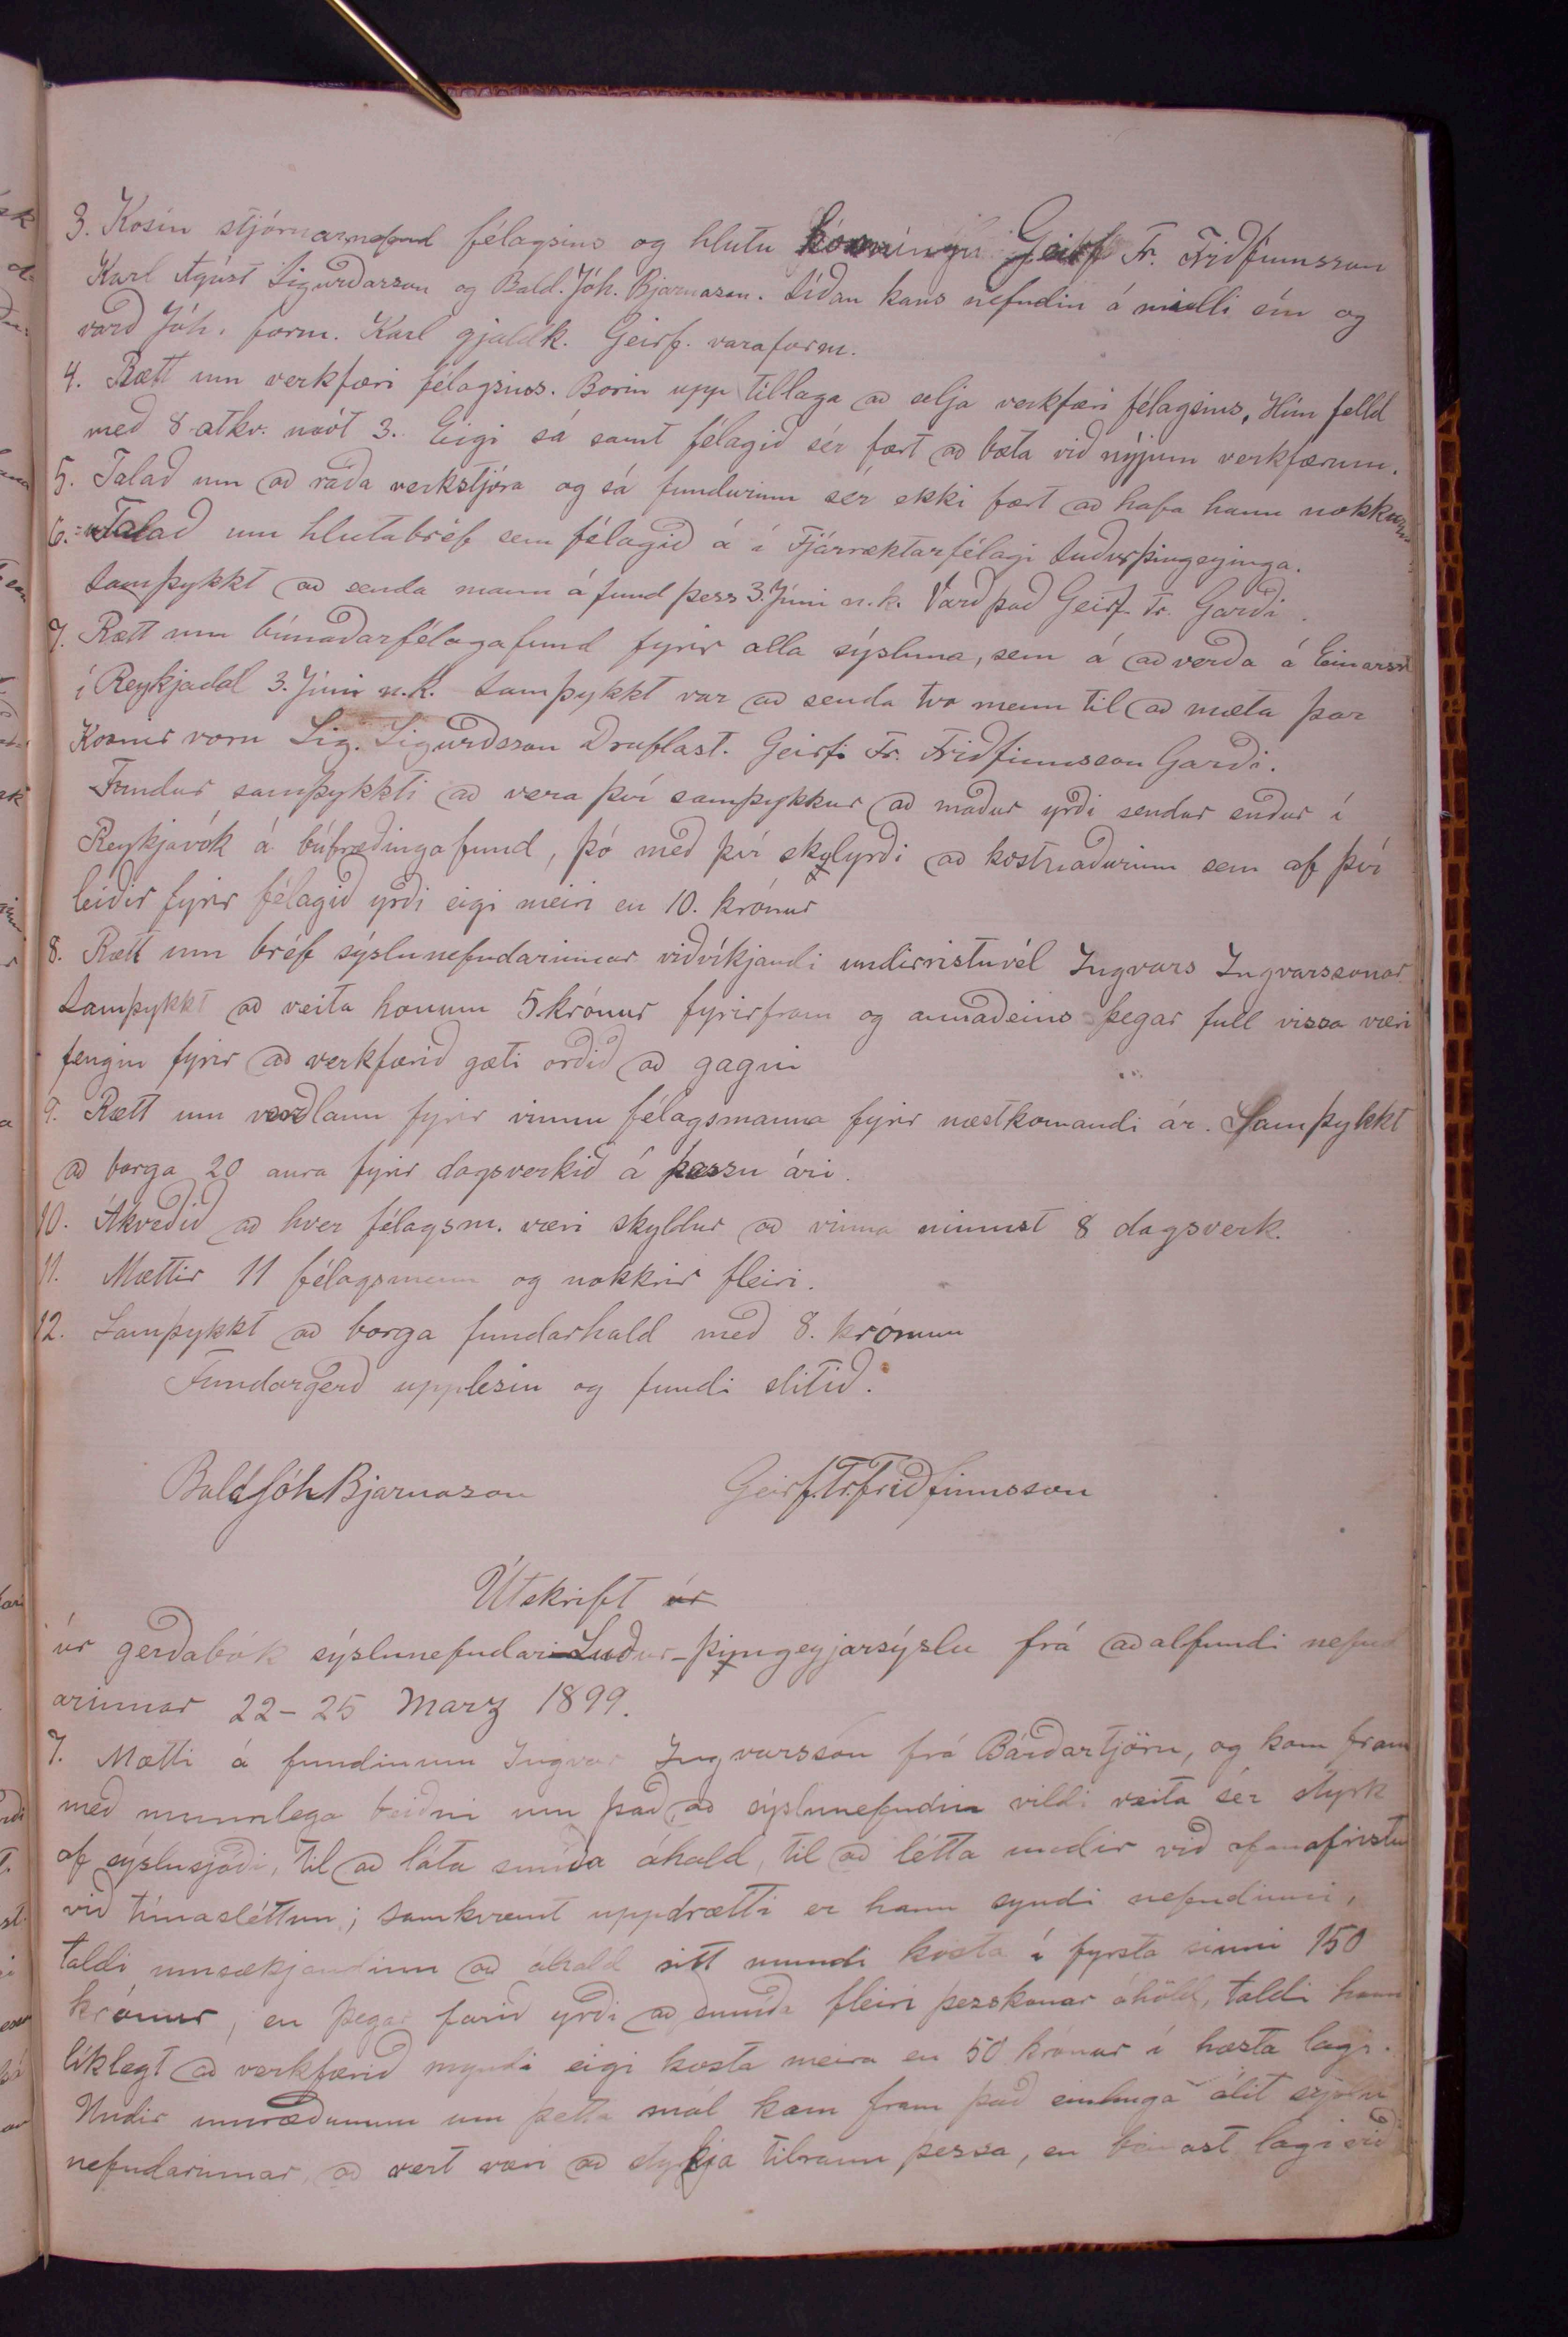 3. Kosin stjórnarnefnd félagsins og hlutu kosningu Geirf. Tr. Friðfinnsson
Karl Ágúst Sigurðarson og Bald. Jóh. Bjarnason. Síðan kaus nefndin á milli sín og
varð Jóh. form. Karl gjaldk. Geirf. varaform.
4. Rætt um verkfæri félagsins. Borin upp tillaga að selja verkfæri félagsins. Hún felld
með 8 atkv. mót 3. Eigi sá samt félagið sér fært að bæta við nýjum verkfærum.
5. Talað um að ráða verkstjóra og sá fundurinn sér ekki fært að hafa hann nokkurn
6. Talað um hlutabréf sem félagið á í Fjárræktarfélagi Suðurþingeyinga.
Samþykkt að senda mann á fund þess 3. Júni n.k. Varð það Geirf. Tr. Garði.
7. Rætt um búnaðarfélagafund fyrir alla sýsluna, sem á að verða á Einarsst
í Reykjadal 3. Júni n.k. Samþykkt var að senda tvo menn til að mæta þar
Kosnir voru Sig. Sigurðsson Draflast. Geirf. Tr. Friðfinnsson Garði.
Fundur samþykkti að vera því samþykkur að maður yrði sendur suður í
Reykjavík á búfræðingafund, þó með því skylyrði að kostnaðurinn sem af því
leiðir fyrir félagið yrði eigi meiri en 10. krónur
8. Rætt um bréf sýslunefndarinnar viðvíkjandi undirristuvél Ingvars Ingvarssonar.
Samþykkt að veita honum 5 krónur fyrirfram og annaðeins þegar full vissa væri
fengin fyrir að verkfærið gæti orðið að gagni
9. Rætt um verðlaun fyrir vinnu félagsmanna fyrir næstkomandi ár. Samþykkt
að borga 20 aura fyrir dagsverkið á þessu ári.
10. Ákveðið að hver félagsm. væri skyldur að vinna minnst 8 dagsverk.
11. Mættir 11 félagsmenn og nokkrir fleiri.
12. Samþykkt að borga fundarhald með 8. krónum
Fundargerð upplesin og fundi slitið.
Bald Jóh Bjarnason Geirf. Tr Friðfinnsson
Útskrift úr
úr gerðabók sýslunefndar Suður-þyngeyjarsýslu frá aðalfundi nefnd
arinnar 22-25 Marz 1899.
7. Mætti á fundinum Ingvar Ingvarsson frá Bárðartjörn, og kom fram
með munnlega beiðni um það, að sýslunefndin vildi veita sér styrk
af sýslusjóði, til að láta smíða áhald, til að létta undir við ofanafristu
við túnasléttun; samkvæmt uppdrætti er hann syndi nefndinni,
taldi umsækjandinn að áhald sitt mundi kosta í fyrsta sinni 150
krónur, en þegar farið yrði að smíða fleiri þesskonar áhöld, taldi hann
líklegt að verkfærið myndi eigi kosta meira en 50 krónur í hæsta lagi.
Undir umræðunum um þetta mál kom fram það einhuga álit sýslu
nefndarinnar, að vert væri að styrkja tilraun þessa, en lagi við